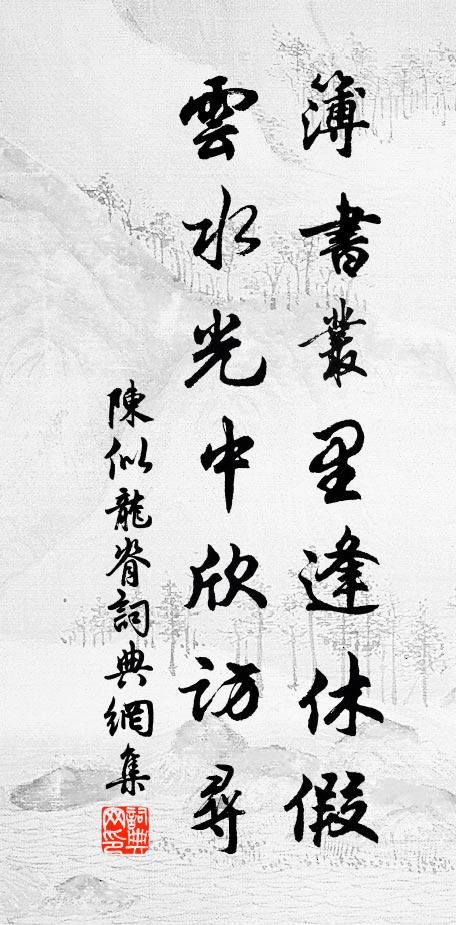 簿書叢里逢休假
雲水光中欣訪尋
陳似龍脊詞典網集
詞典
网印